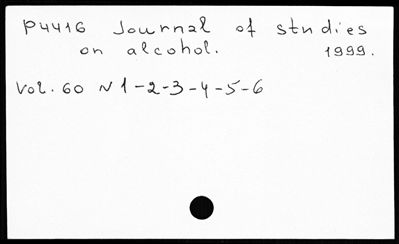 P4416 Journal of studies
on alcohol. 1999.
Vol. 60 N 1-2-3-4-5-6